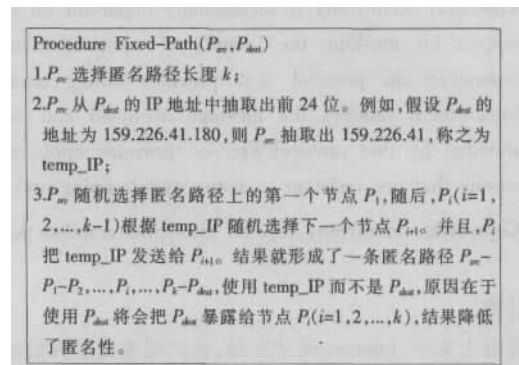 Procedure Fixed-Path(Psrc,Pdest)
1.Psrc 选择匿名路径长度 k；
2.Psrc 从 Pdest 的 IP 地址中抽取出前 24 位。例如，假设 Pdest 的
地址为 159.226.41.180，则 Psrc 抽取出 159.226.41，称之为
temp_IP；
3.Psrc 随机选择匿名路径上的第一个节点 P1，随后，Pi(i=1,
2,…,k-1)根据 temp_IP 随机选择下一个节点 Pi+1。并且，Pi
把 temp_IP 发送给 Pi+1。结果就形成了一条匿名路径 Psrc-
P1-P2,…,Pi,…,Pk-Pdest，使用 temp_IP 而不是 Pdest，原因在于
使用 Pdest 将会把 Pdest 暴露给节点 Pi(i=1,2,…,k)，结果降低
了匿名性。